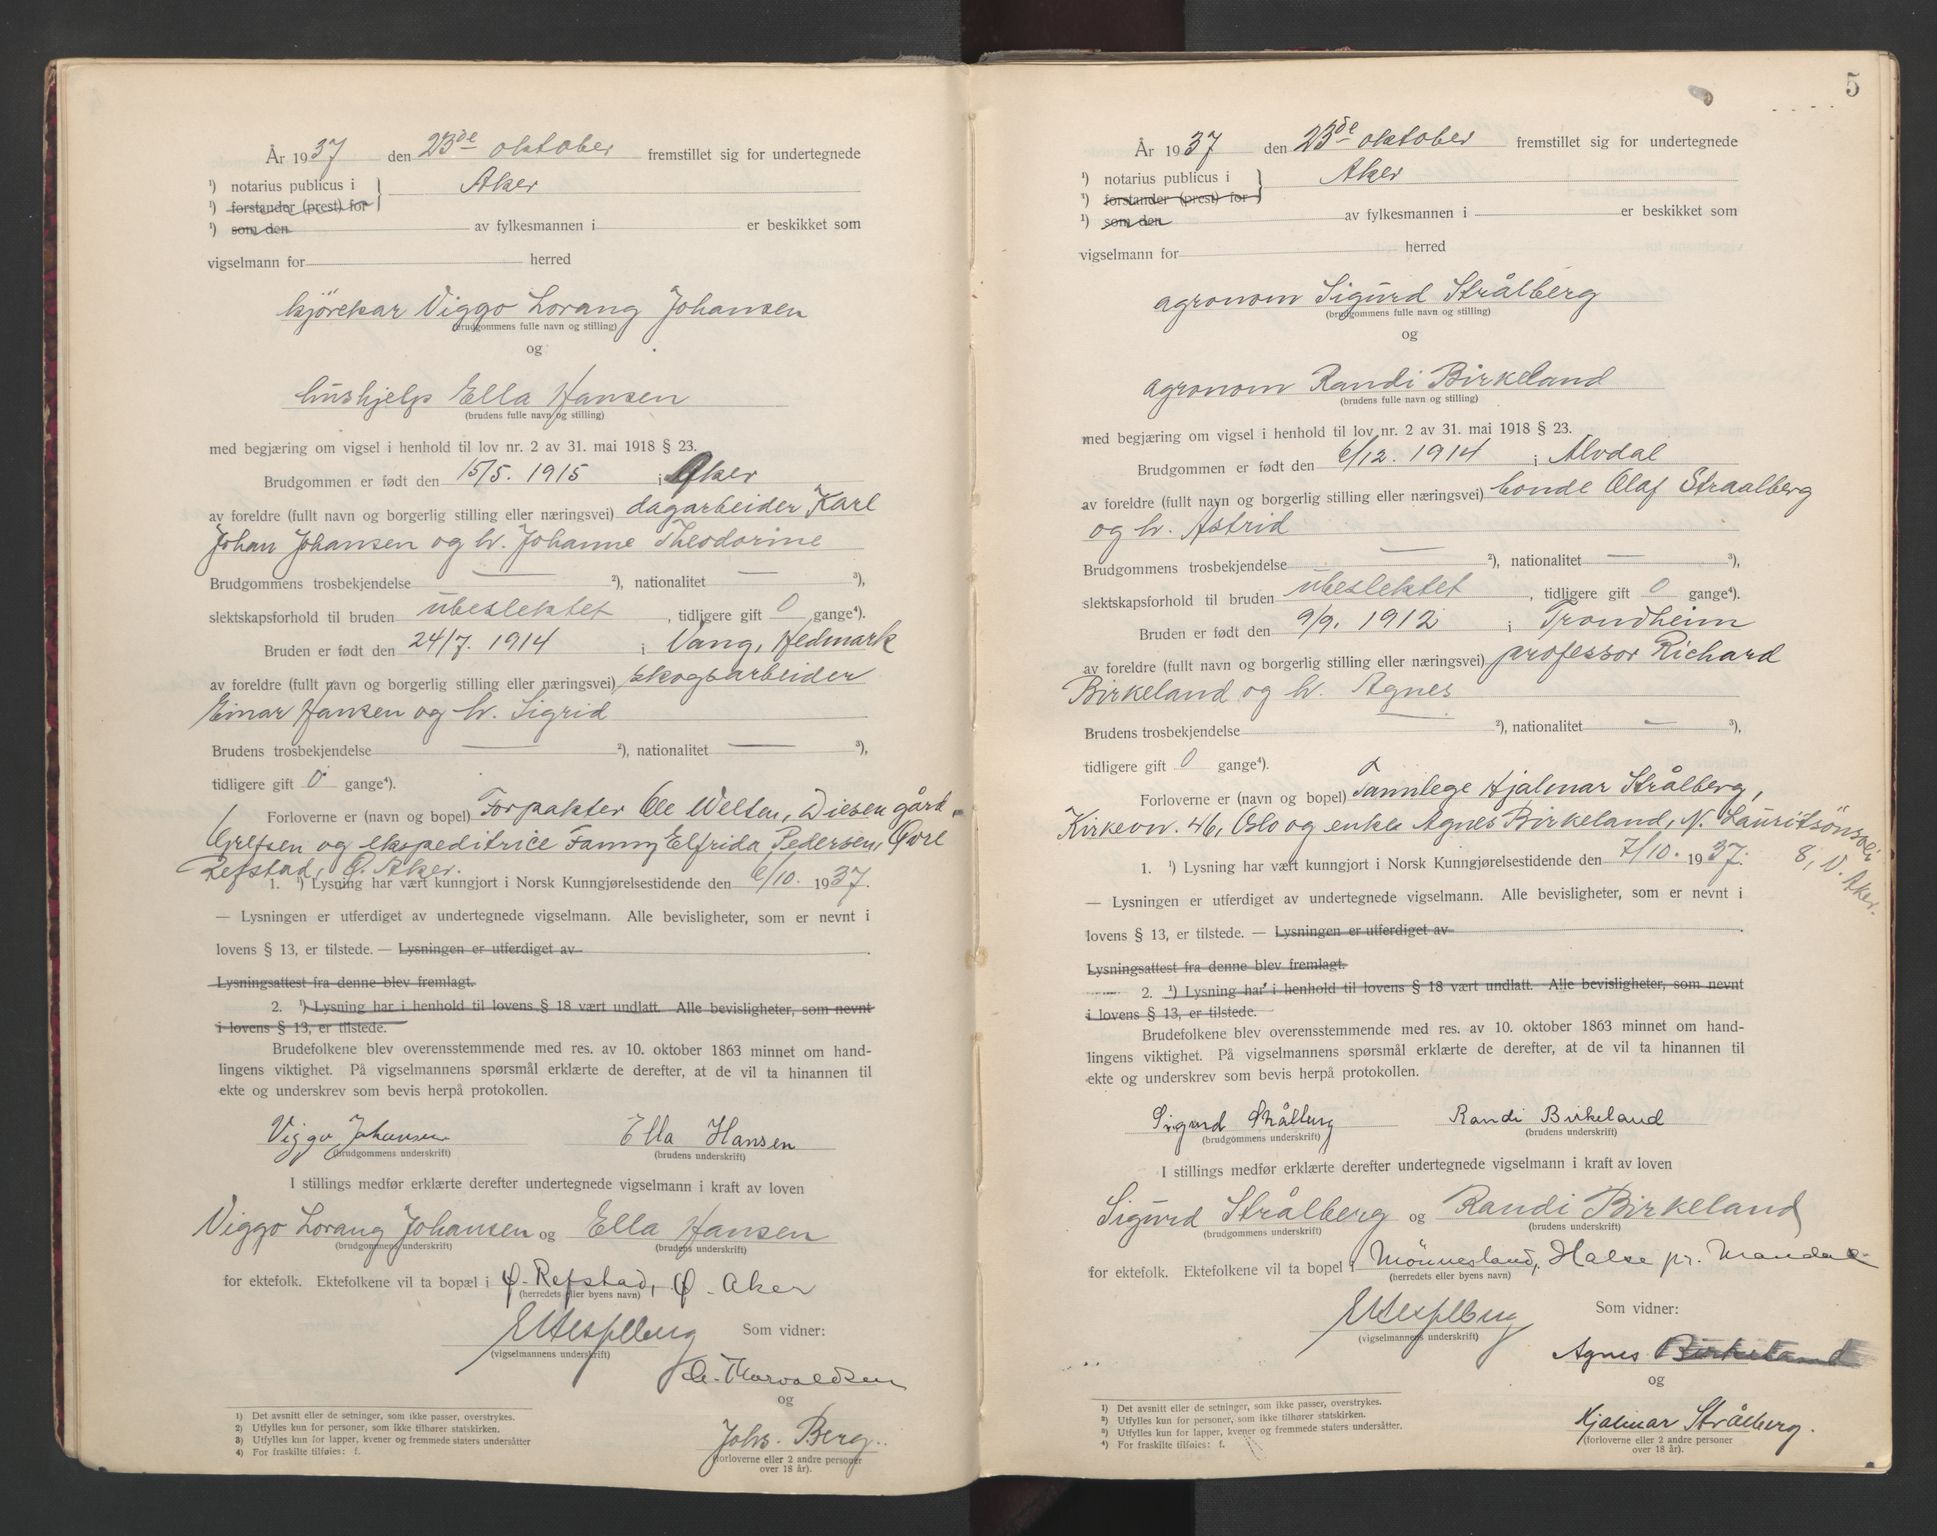 År 1937 den 23de oktober fremstillet sig for undertegnede
¹) notarius publicus i } Aker
¹) forstander (prest) for
¹) som den av fylkesmannen i er beskikket som
vigselmann for herred
kjørekar Viggo Lorang Johansen
(brudgommens fulle navn og stilling)
og
hushjelp Ella Hansen
(brudens fulle navn og stilling)
med begjæring om vigsel i henhold til lov nr. 2 av 31. mai 1918 § 23.
Brudgommen er født den 15/5. 1915 i Aker
av foreldre (fullt navn og borgerlig stilling eller næringsvei) dagarbeider Karl
Johan Johansen og h. Johanne Theodorine
Brudgommens trosbekjendelse — ²), nationalitet — ³),
slektskapsforhold til bruden ubeslektet, tidligere gift 0 gange⁴).
Bruden er født den 24/7. 1914 i Vang, Hedmark
av foreldre (fullt navn og borgerlig stilling eller næringsvei) skogsarbeider
Einar Hansen og h. Sigrid
Brudens trosbekjendelse — ²), nationalitet — ³),
tidligere gift 0 gange⁴).
Forloverne er (navn og bopel) Forpakter Ole Welten, Disen gård,
Grefsen og ekspeditrice Fanny Elfrida Pedersen, Øvre
Refstad, Ø. Aker.
1. ¹) Lysning har vært kunngjort i Norsk Kunngjørelsestidende den 6/10. 1937.
— Lysningen er utferdiget av undertegnede vigselmann. Alle bevisligheter, som er nevnt i
lovens § 13, er tilstede. — Lysningen er utferdiget av
Lysningsattest fra denne blev fremlagt.
2. ¹) Lysning har i henhold til lovens § 18 vært undlatt. Alle bevisligheter, som nevnt
i lovens § 13, er tilstede.
Brudefolkene blev overensstemmende med res. av 10. oktober 1863 minnet om hand-
lingens viktighet. På vigselmannens spørsmål erklærte de derefter, at de vil ta hinannen til
ekte og underskrev som bevis herpå protokollen.
Viggo Johansen Ella Hansen
(brudgommens underskrift) (brudens underskrift)
I stillings medfør erklærte derefter undertegnede vigselmann i kraft av loven
Viggo Lorang Johansen og Ella Hansen
(brudgommens underskrift) (brudens underskrift)
for ektefolk. Ektefolkene vil ta bopæl i Ø. Refstad, Ø. Aker
(herredets eller byens navn)
Som vidner:
(vigselmannens underskrift)
Thorvaldsen
og
Johs. Berg.
(forloverne eller 2 andre personer
over 18 år).
1) Det avsnitt eller de setninger, som ikke passer, overstrykes.
2) Utfylles kun for personer, som ikke tilhører statskirken.
3) Utfylles kun for lapper, kvener og fremmede staters undersåtter
4) For fraskilte tilføies: f.
5
År 1937 den 23de oktober fremstillet sig for undertegnede
¹) notarius publicus i } Aker
¹) forstander (prest) for
¹) som den av fylkesmannen i er beskikket som
vigselmann for herred
agronom Sigurd Strålberg
(brudgommens fulle navn og stilling)
og
agronom Randi Birkeland
(brudens fulle navn og stilling)
med begjæring om vigsel i henhold til lov nr. 2 av 31. mai 1918 § 23.
Brudgommen er født den 6/12. 1914 i Alvdal
av foreldre (fullt navn og borgerlig stilling eller næringsvei) bonde Olaf Straalberg
og h. Astrid
Brudgommens trosbekjendelse — ²), nationalitet — ³),
slektskapsforhold til bruden ubeslektet, tidligere gift 0 gange⁴).
Bruden er født den 9/9. 1912 i Trondheim
av foreldre (fullt navn og borgerlig stilling eller næringsvei) professor Richard
Birkeland og h. Agnes
Brudens trosbekjendelse ²), nationalitet — ³),
tidligere gift 0 gange⁴).
Forloverne er (navn og bopel) Tannlege Hjalmar Strålberg,
Kirkevn. 46, Oslo og enke Agnes Birkeland, N. Lauritsönsvei
8, V. Aker.
1. ¹) Lysning har vært kunngjort i Norsk Kunngjørelsestidende den 7/10. 1937.
— Lysningen er utferdiget av undertegnede vigselmann. Alle bevisligheter, som er nevnt i
lovens § 13, er tilstede. — Lysningen er utferdiget av
Lysningsattest fra denne blev fremlagt.
2. ¹) Lysning har i henhold til lovens § 18 vært undlatt. Alle bevisligheter, som nevnt
i lovens § 13, er tilstede.
Brudefolkene blev overensstemmende med res. av 10. oktober 1863 minnet om hand-
lingens viktighet. På vigselmannens spørsmål erklærte de derefter, at de vil ta hinannen til
ekte og underskrev som bevis herpå protokollen.
Sigurd Strålberg Randi Birkeland
(brudgommens underskrift) (brudens underskrift)
I stillings medfør erklærte derefter undertegnede vigselmann i kraft av loven
Sigurd Strålberg og Randi Birkeland
(brudgommens underskrift) (brudens underskrift)
for ektefolk. Ektefolkene vil ta bopel i Mönnesland, Halse pr. Mandal
(herredets eller byens navn)
Som vidner:
(vigselmannens underskrift)
Agnes Birkeland
og
Hjalmar Strålberg.
(forloverne eller 2 andre personer
over 18 år).
¹) Det avsnitt eller de setninger, som ikke passer, overstrykes.
²) Utfylles kun for personer, som ikke tilhører statskirken.
³) Utfylles kun for lapper, kvener og fremmede staters undersåtter.
⁴) For fraskilte tilføies: f.